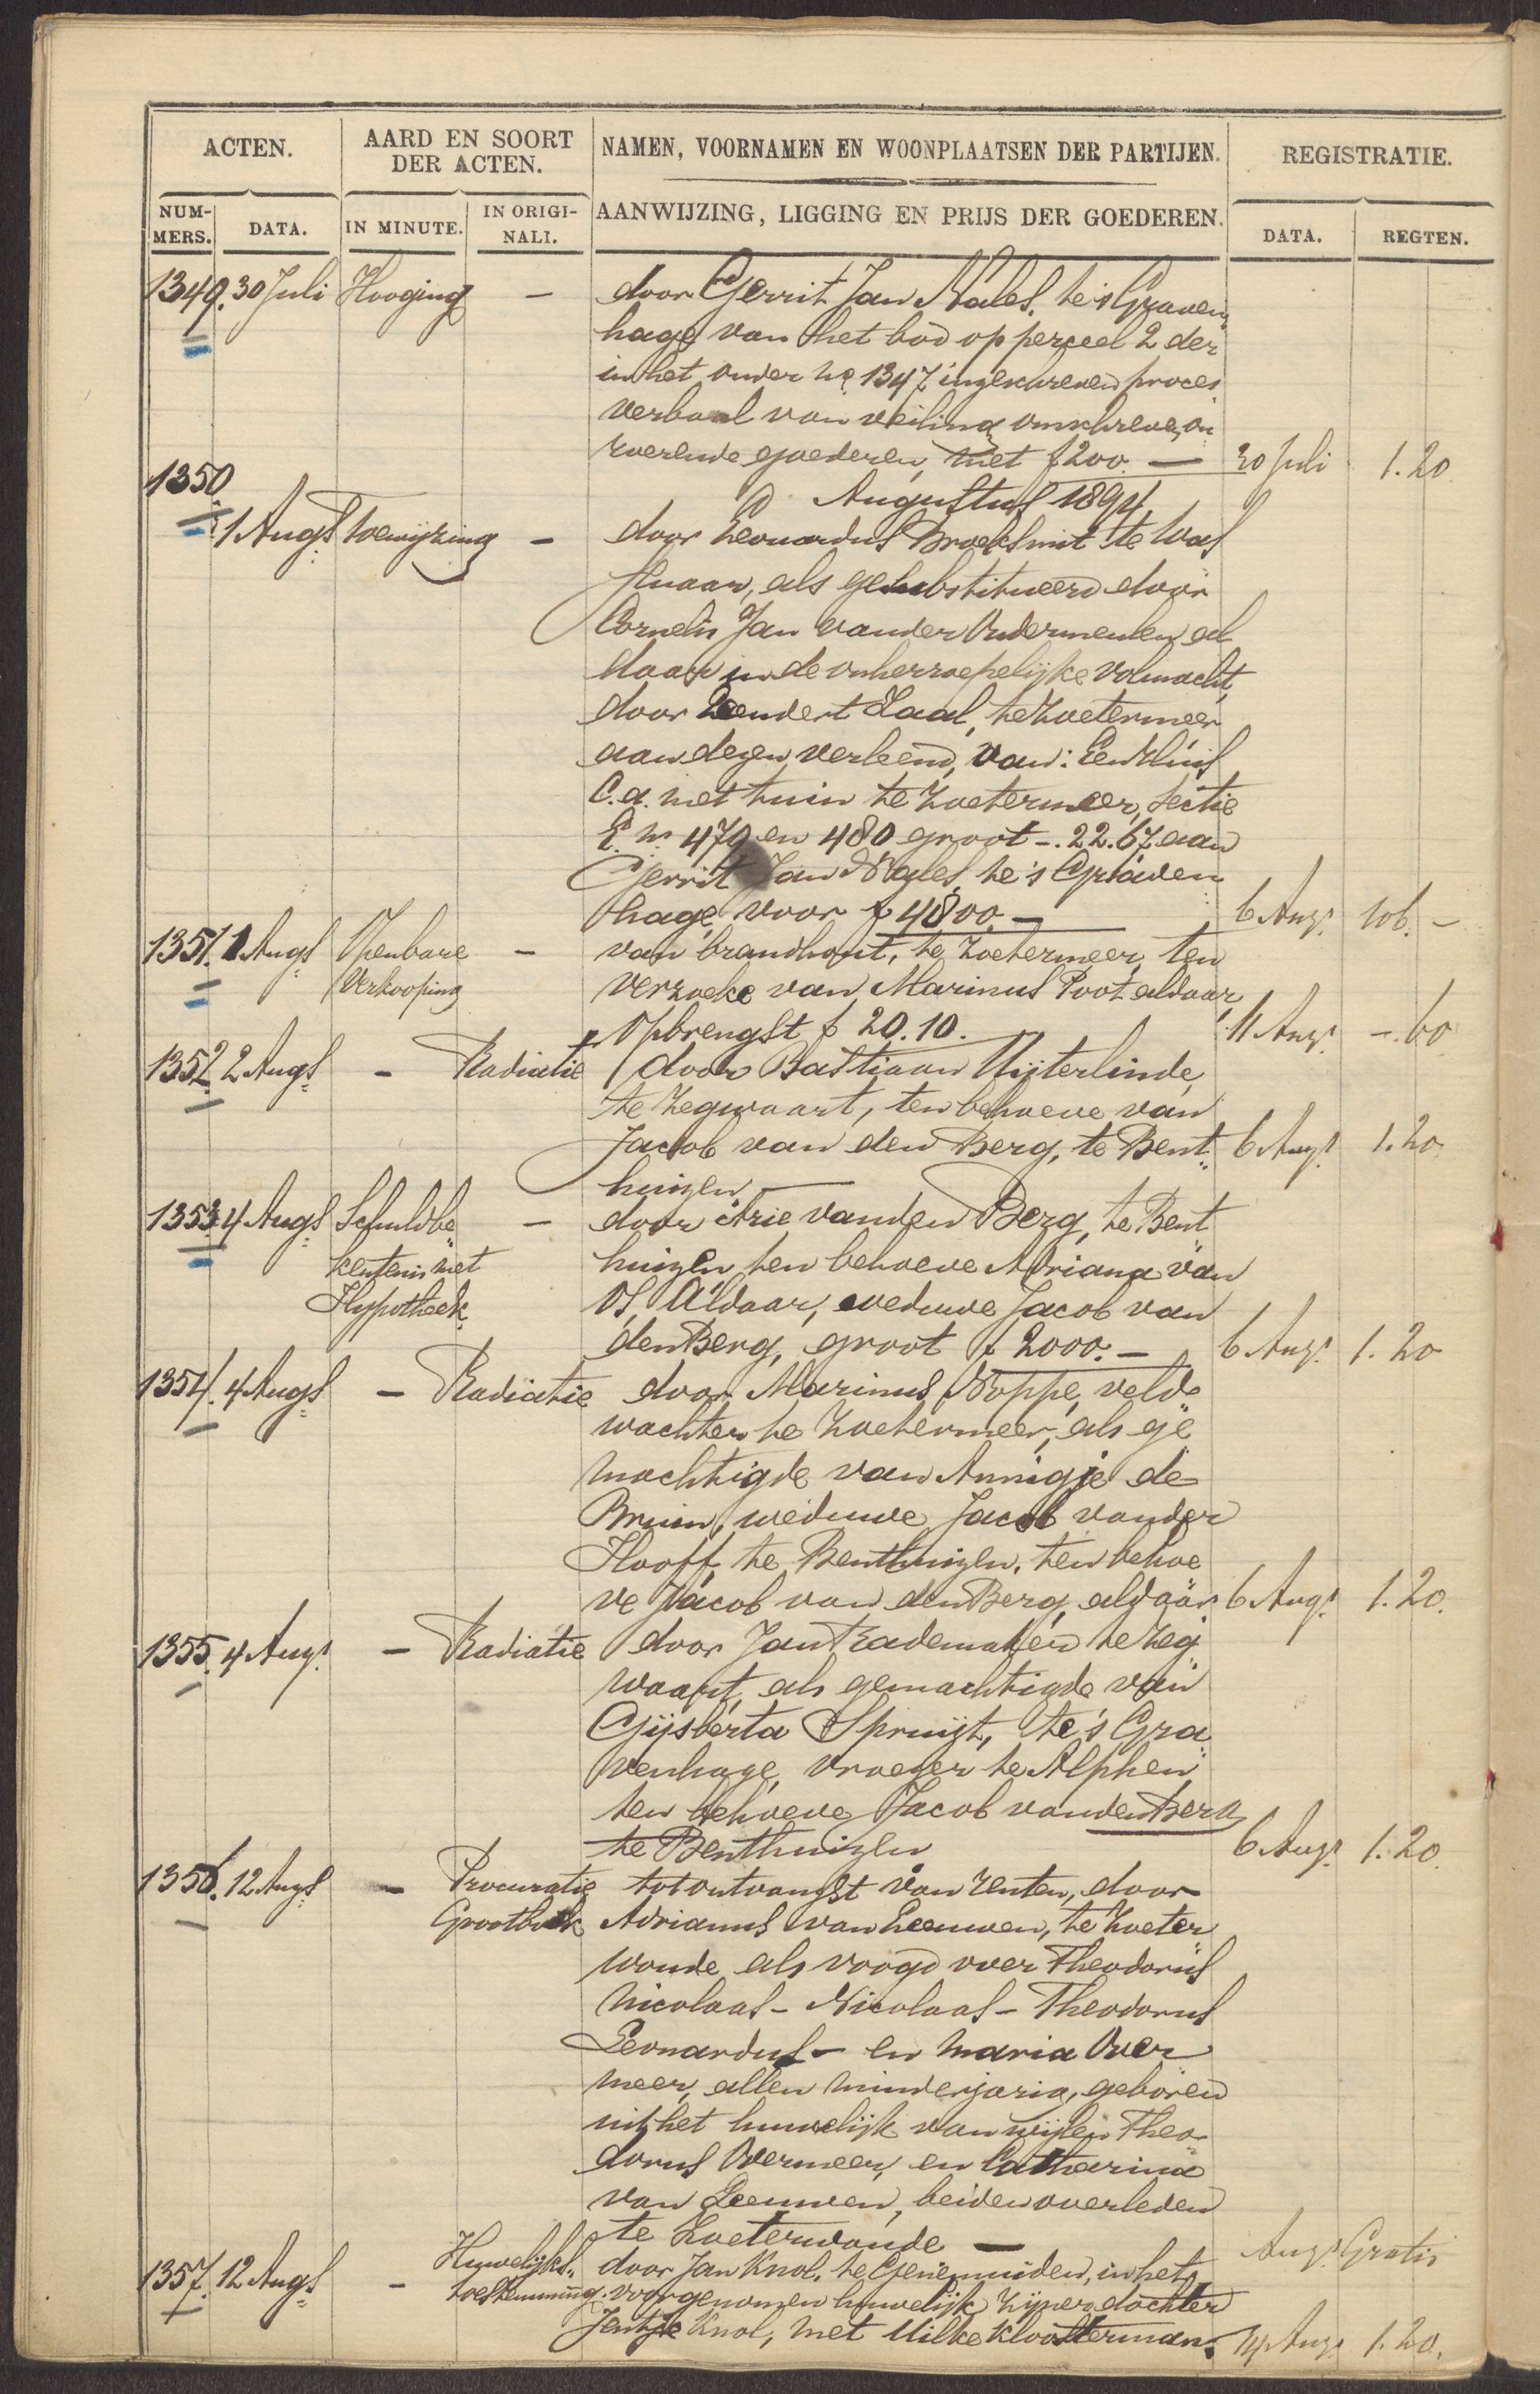 ACTEN.
AARD EN SOORT
DER ACTEN.
NAMEN, VOORNAMEN EN WOONPLAATSEN DER PARTIJEN.
REGISTRATIE.
NUM-
MERS.
DATA.
IN MINUTE.
IN ORIGI-
NALI.
AANWIJZING, LIGGING EN PRIJS DER GOEDEREN.
DATA.
REGTEN.
1349. 30 Juli Hooging — door Gerrit Jan Nales, te 's Graven
hage van het bod op perceel 2 der
in het onder No 1347 ingeschreven proces
verbaal van veiling omschreven on
roerende goederen, met f 200. — 30 Juli 1.20
1350
Augustus 1894
1 Augs toewijzing — door Leonardus Broeksmit te Was
senaar, als gesubstitueerd door
Cornelis Jan van der Oudermeulen al
daar in de onherroepelijke volmacht,
door Leendert Laal, te Zoetermeer
aan dezen verleend, van: Een Huis
C.a. met tuin te Zoetermeer, Sectie
E. No 479 en 480 groot -. 22.67 aan
Gerrit Jan Nales, te 's Graven
hage, voor f 4800. — 6 Augs 106. -
1351. 1 Augs Openbare — van brandhout, te Zoetermeer, ten
Verkooping verzoeke van Marinus Poot aldaar,
Opbrengst f 20.10. 11 Augs -. 60
1352. 2 Augs — Radiatie door Bastiaan Uijterlinde,
te Zegwaart, ten behoeve van
Jacob van den Berg, te Bent 6 Augs 1.20.
huizen —
1353. 4 Augs Schuldbe — door Arie van den Berg, te Bent
kentenis met huizen ten behoeve Adriana van
Hypotheek Os, Aldaar, weduwe Jacob van
den Berg, groot f 2000. — 6 Augs 1.20
1354. 4 Augs — Radiatie door Marinus Noppe, veld
wachter te Zoetermeer, als ge
machtigde van Annigje de
Bruin, weduwe Jacob van der
Hooff, te Benthuizen, ten behoe
ve Jacob van den Berg, aldaar 6 Augs 1.20.
1355. 4 Augs — Radiatie door Jan Rademaker te Zeg
waart, als gemachtigde van
Gijsberta Spruijt, te 's Gra
venhage, vroeger te Alphen
ten behoeve Jacob van den Berg
te Benthuizen 6 Augs 1.20.
1356. 12 Augs — Procuratie tot ontvangst van renten, door
Grootboek Adrianus van Leeuwen, te Zoeter
woude als voogd over Theodorus
Nicolaas - Nicolaas - Theodorus
Leonardus - en Maria Over
meer, allen minderjarig, geboren
uit het huwelijk van wijlen Theo
dorus Overmeer, en Catharina
van Leeuwen, beiden overleden
te Zoeterwoude — Augs Gratis
1357. 12 Augs — Huwelijks door Jan Knol, te Genemuiden, in het
toestemming. voorgenomen huwelijk zijner dochter
Jentje Knol, met Uilke Kloosterman. 14 Augs 1.20.